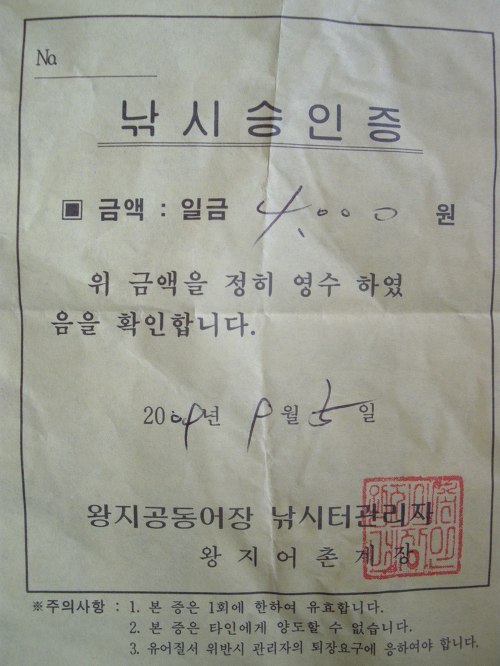 No.
낚시승인증
▣ 금액 : 일금 4,000 원
위 금액을 정히 영수 하였
음을 확인합니다.
2009년 9월 5일
왕지공동어장 낚시터관리자
왕지어촌계장
※주의사항 : 1. 본 증은 1회에 한하여 유효합니다.
2. 본 증은 타인에게 양도할 수 없습니다.
3. 유어질서 위반시 관리자의 퇴장요구에 응하여야 합니다.